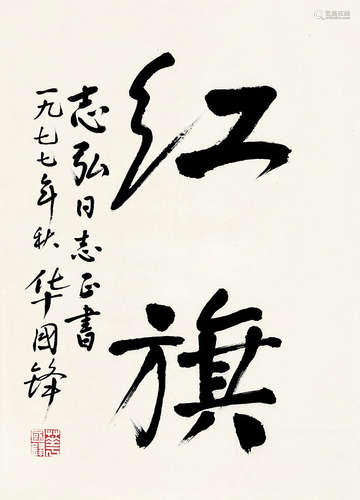 红旗
志弘同志正书
一九七七年秋 华國锋